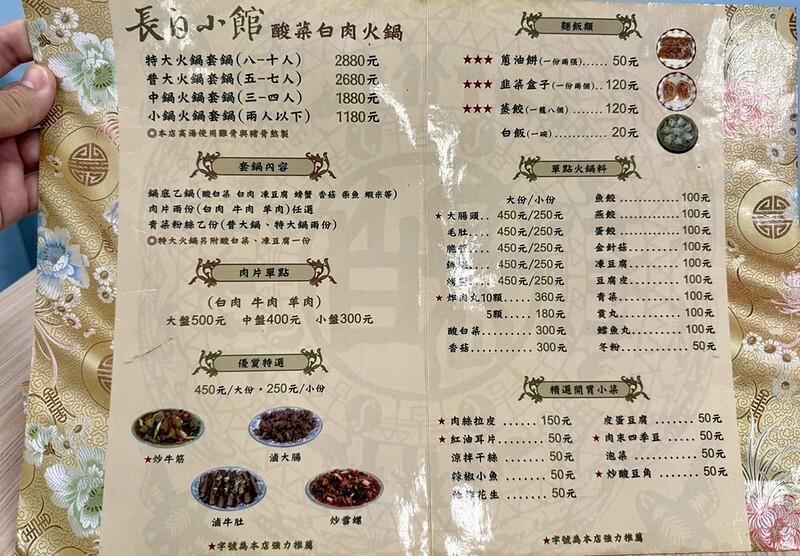 長白小館 酸菜白肉火鍋
特大火鍋套鍋(八-十人) 2880元
普大火鍋套鍋(五-七人) 2680元
中鍋火鍋套鍋(三-四人) 1880元
小鍋火鍋套鍋(兩人以下) 1180元
◎本店高湯使用雞骨與豬骨熬製
套鍋內容
鍋底乙鍋(酸白菜 白肉 凍豆腐 螃蟹 香菇 柴魚 蝦米等)
肉片兩份(白肉 牛肉 羊肉)任選
青菜粉絲乙份(普大鍋、特大鍋兩份)
◎特大火鍋另附酸白菜、凍豆腐一份
肉片單點
(白肉 牛肉 羊肉)
大盤500元 中盤400元 小盤300元
優質特選
450元/大份・250元/小份
★炒牛筋
滷大腸
滷牛肚
炒雪螺
★字號為本店強力推薦
麵飯類
★★★ 蔥油餅(一份兩張)...... 50元
★★★ 韭菜盒子(一份兩個).. 120元
★★★ 蒸餃(一籠八個)........ 120元
白飯(一碗)........ 20元
單點火鍋料
大份/小份
★大腸頭.. 450元/250元
毛肚...... 450元/250元
脆管...... 450元/250元
450元/250元
450元/250元
★炸肉丸10顆...... 360元
5顆...... 180元
酸白菜........... 300元
香菇.............. 300元
魚餃............ 100元
燕餃............ 100元
蛋餃............ 100元
金針菇......... 100元
凍豆腐......... 100元
豆腐皮......... 100元
青菜............ 100元
貢丸............ 100元
鱈魚丸......... 100元
冬粉............ 50元
精選開胃小菜
★肉絲拉皮 ...... 150元
★紅油耳片........ 50元
涼拌干絲 ...... 50元
辣椒小魚 ...... 50元
花生 ...... 50元
皮蛋豆腐 ....... 50元
★肉末四季豆 .... 50元
泡菜 ....... 50元
★炒酸豆角 ....... 50元
★字號為本店強力推薦